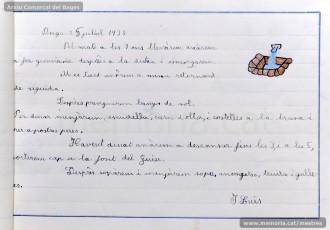 Arxiu Comarcal del Bages
Dmgs. 5 juliol 1933
Al matí a les 8 ens llevàrem, anàrem
a fer gimnàsia després a la dutxa i esmorzàrem.
Més tard anàrem a missa retornant
de seguida.
Després prenguérem banys de sol.
Per dinar menjàrem, escudella, carn d'olla, i costelles a la brasa i
per a postres peres.
Havent dinat anàrem a descansar fins les
sortírem cap a la font del
Després sopàrem i menjàrem sopa, mongetes, truita i galle
tes.
Lluís
www.memoria.cat/mestres